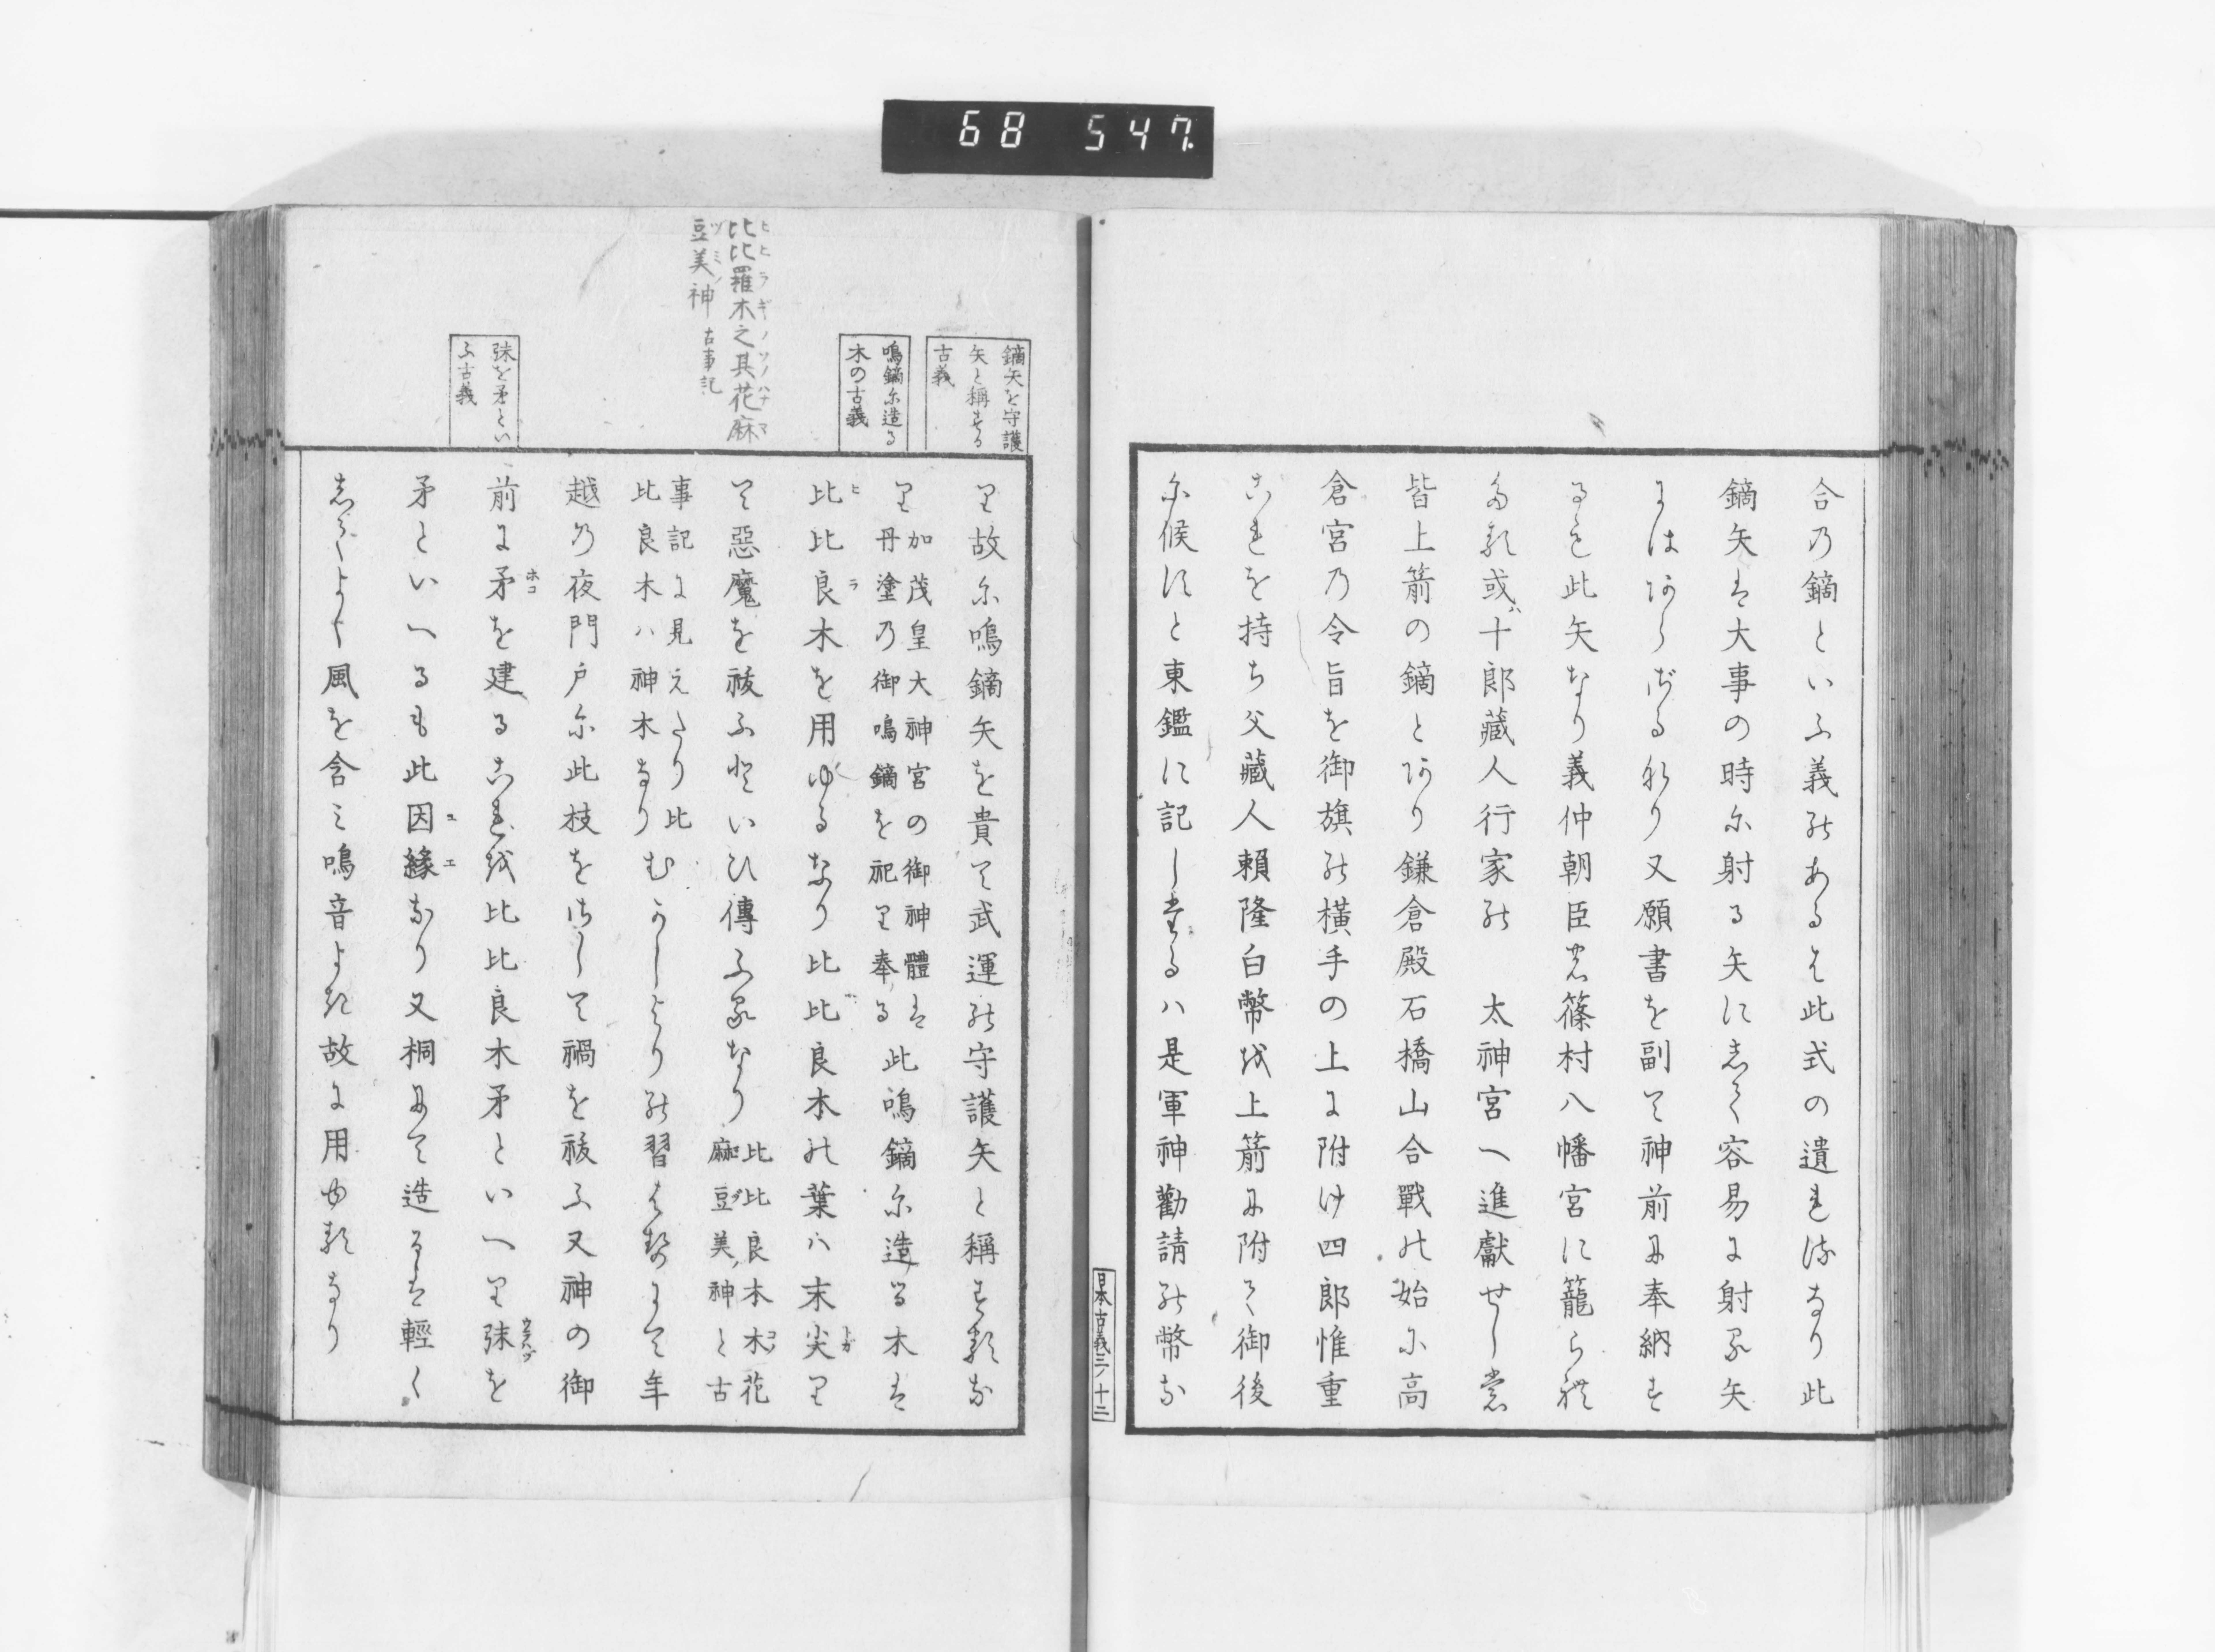 68 547
合乃鏑といふ義のあるを此式の遺れるなり此
鏑矢は大事の時に射る矢にして容易に射る矢
にはあらざるなり又願書を副て神前に奉納す
るも此矢なり義仲朝臣の篠村八幡宮に籠られ
たる或ハ十郎藏人行家の 太神宮へ進獻せし
皆上箭の鏑とあり鎌倉殿石橋山合戰の始に高
倉宮乃令旨を御旗の横手の上に附け四郎惟重
これを持ち父藏人賴隆白幣を上箭に附て御後
に候すと東鑑に記したるハ是軍神勸請の幣な
日本古義三ノ十二
鏑矢を守護
矢と稱する
古義
鳴鏑に造る
木の古義
比比羅木之其花麻
ヒヒラギノソノハナマ
豆美神 古事記
ヅミノ
弭を矛とい
ふ古義
り故に鳴鏑矢を貴て武運の守護矢と稱するな
り 加茂皇大神宮の御神體は
丹塗乃御鳴鏑を祀り奉る 此鳴鏑に造る木は
比比良木を用ゆるなり比比良木の葉ハ末尖り
て惡魔を祓ふといひ傳ふるなり 比比良木木花
麻豆美神と古
事記に見えたり比
比良木ハ神木なり むかしよりの習はせにて年
越乃夜門戸に此枝をさして禍を祓ふ又神の御
前に矛を建るこれを比比良木矛といへり弭を
矛といへるも此因緣なり又桐にて造るは輕く
しかくよく風を含ミ鳴音よき故に用ゆるなり